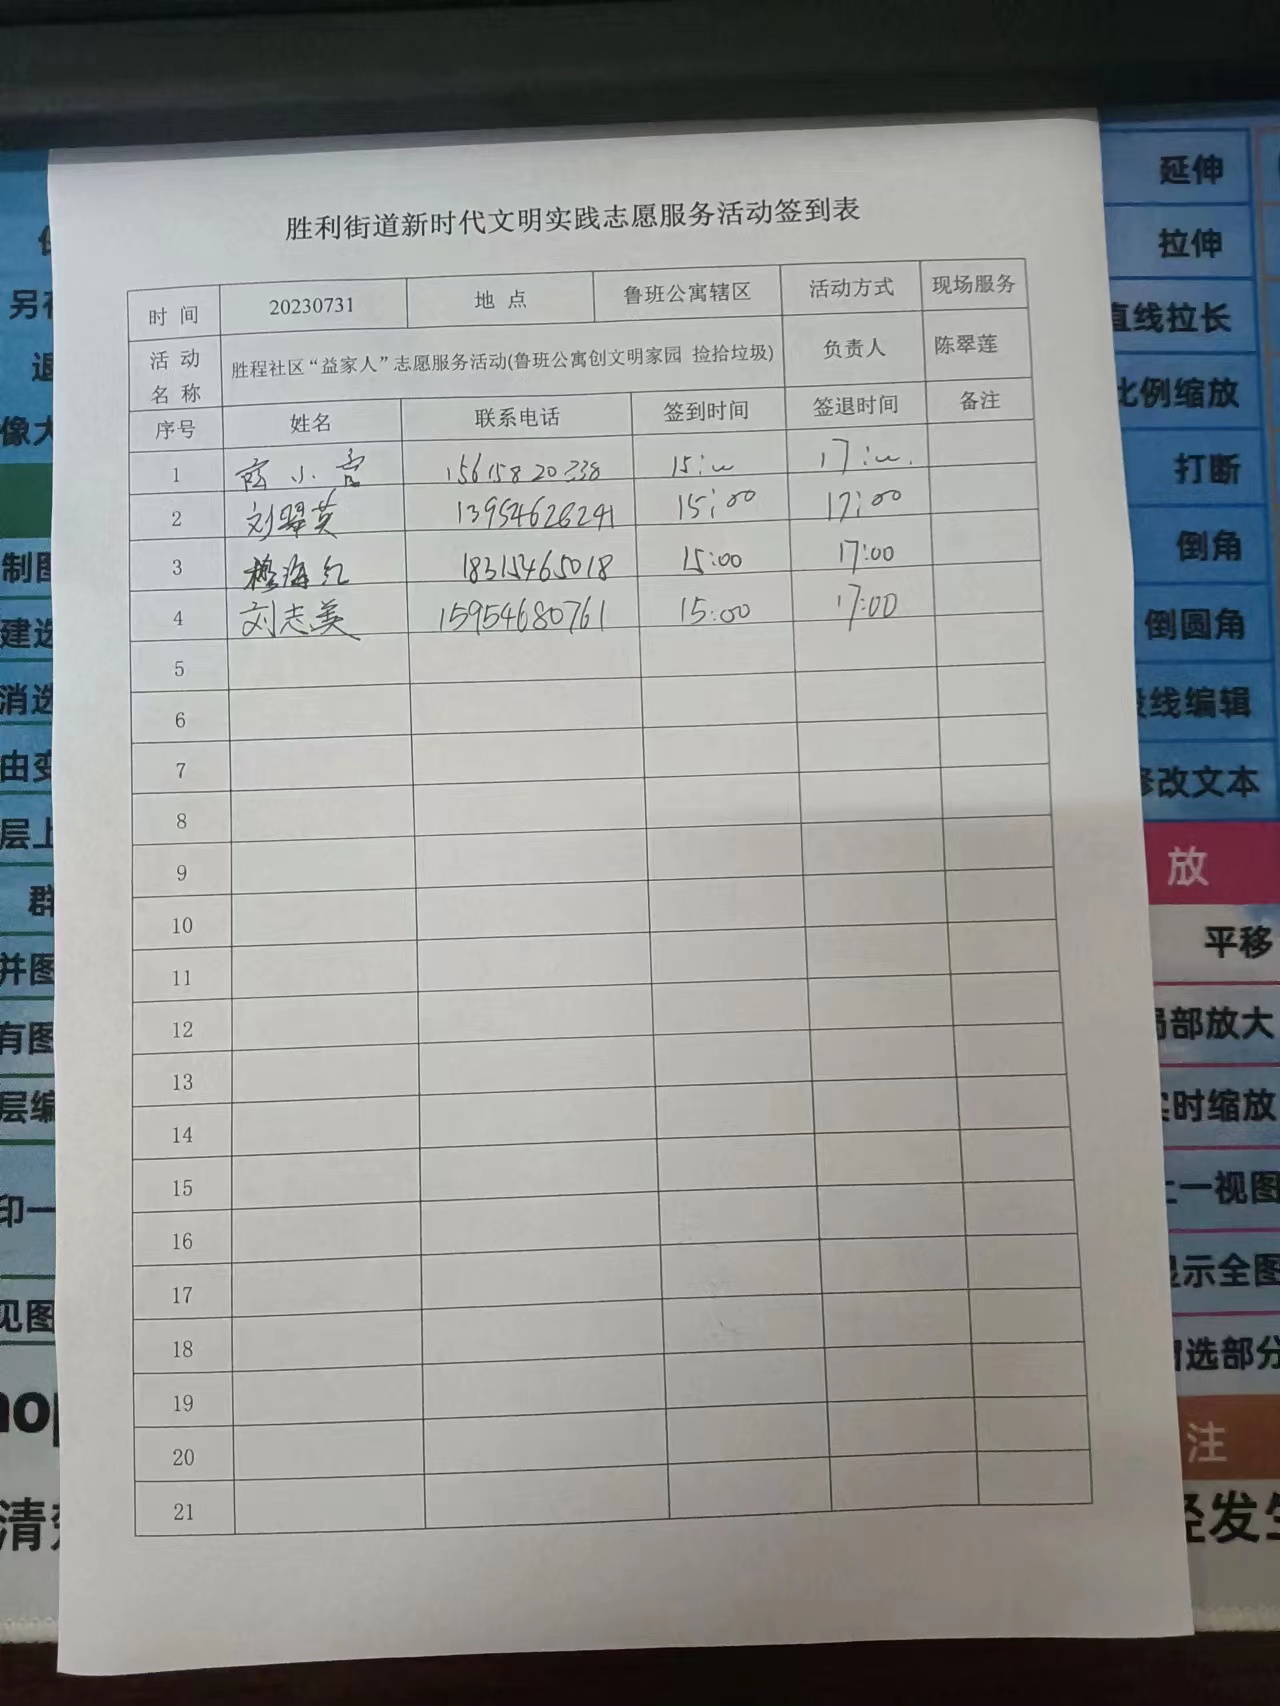 胜利街道新时代文明实践志愿服务活动签到表
时 间 20230731 地 点 鲁班公寓辖区 活动方式 现场服务
活 动 名 称 胜程社区“益家人”志愿服务活动(鲁班公寓创文明家园 捡拾垃圾) 负责人 陈翠莲
序号 姓名 联系电话 签到时间 签退时间 备注
1 小 15615820238
2 刘翠英 13954626241 15:00 17:00
3 穆海红 18315465018 15:00 17:00
4 刘志美 15954680761 15:00 17:00
5
6
7
8
9
10
11
12
13
14
15
16
17
18
19
20
21
延伸
拉伸
直线拉长
比例缩放
打断
倒角
倒圆角
线编辑
修改文本
放
平移
局部放大
实时缩放
上一视图
显示全图
选部分
注
经发生
另存
退
像大
制图
建选
消选
由变
层上
群
并图
有图
层编
印一
见图
清楚